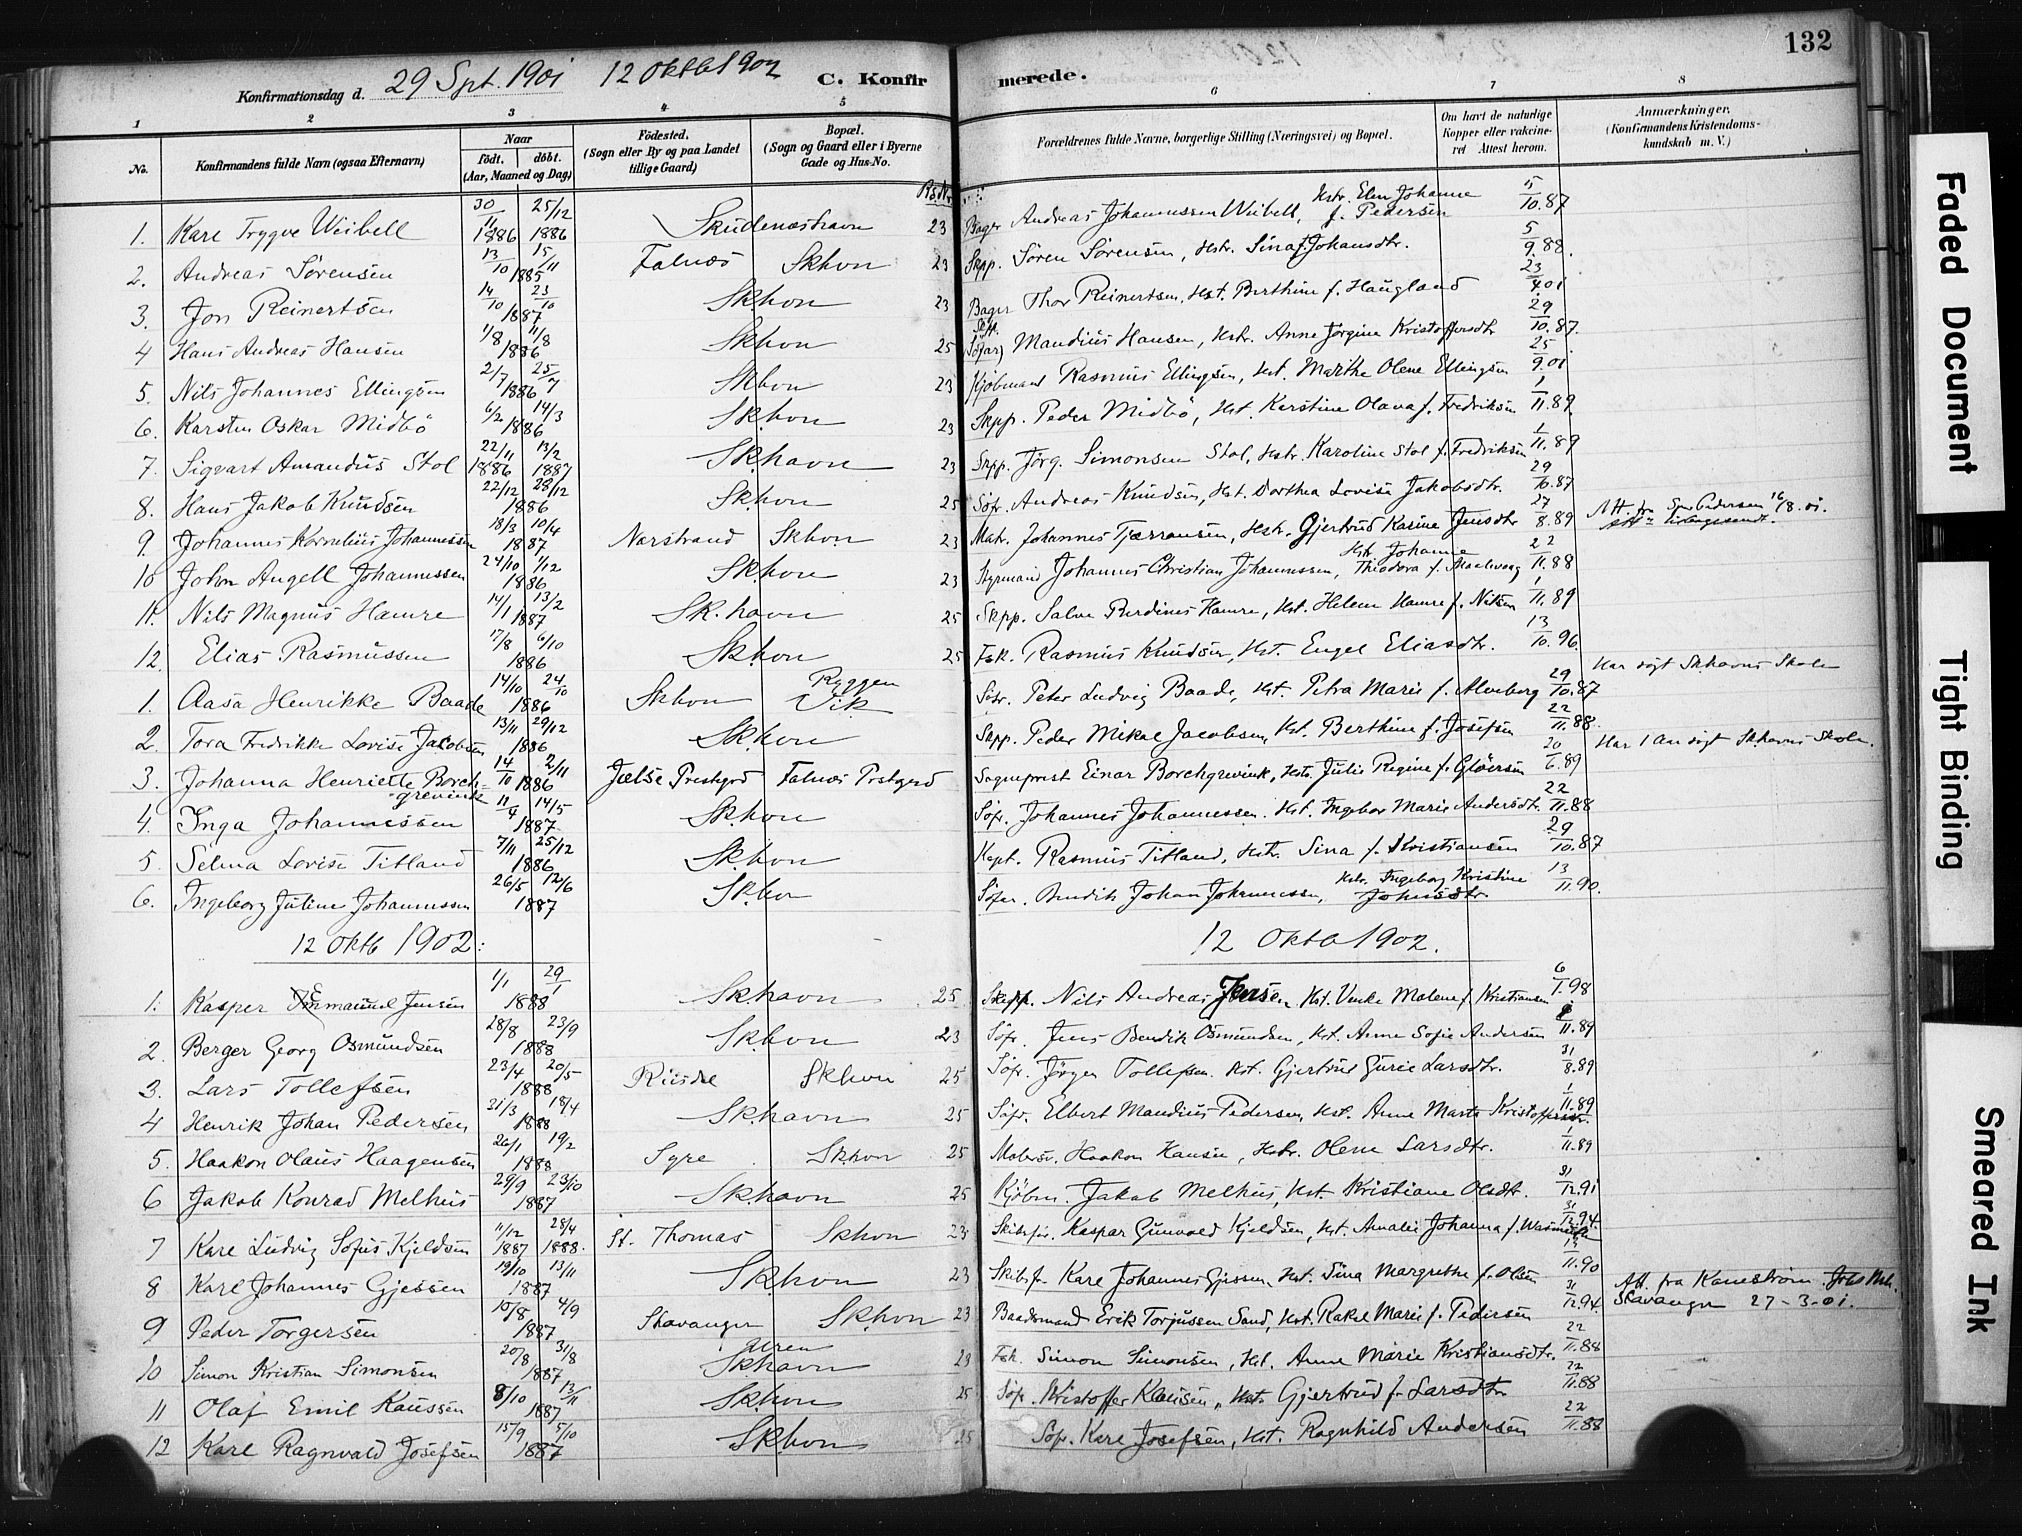 132
Konfirmationsdag d. 29 Spt. 1901 12 Oktb 1902 C. Konfirmerede.
1 2 3 4 5 6 7 8
No. Konfirmandens fulde Navn (ogsaa Efternavn) Naar født. døbt. (Aar, Maaned og Dag) Fødested. (Sogn eller By og paa Landet tillige Gaard) Bopæl. (Sogn og Gaard eller i Byerne Gade og Hus-No. Forældrenes fulde Navne, borgerlige Stilling (Næringsvei) og Bopæl. Om havt de naturlige Kopper eller vakcineret Attest herom. Anmærkninger. (Konfirmandens Kristendomskundskab m. V.)
1. Karl Trygve Weibell 30/11 1886 25/12 1886 Skudeneshavn 23 Bager Andreas Johannessen Weibell, Hstr. Elen Johanne f. Pedersen 15/10.87
2. Andreas Sørensen 13/10 15/11 1885 Falnæs Skhvn 23 Skpp. Søren Sørensen, Hstr. Sina f. Johansdtr. 5/9.88.
3. Jon Reinertsen 14/10 23/10 1887 Skhvn 23 Bager Thor Reinertsen, Hst. Berthine f. Haugland 23/4.01
4 Hans Andreas Hansen 1/8 11/8 1886 Skhvn 25 Mandius Hansen, Hstr. Anne Jørgine Kristoffersdtr 29/10.87.
5. Nils Johannes Ellingsen 2/7 25/7 1886 Skhvn 23 Kjøbmand Rasmus Ellingsen, Hst. Marthe Olene Ellingsen 25/9.01
6. Karsten Oskar Midbø 6/2 14/3 1886 Skhvn 23 Skpp. Peder Midbø, Hst. Karstine Olava f. Fredriksen 1/11.89
7. Sigvart Amandus Stol 22/11 1886 13/2 1887 Skhavn 23 Skpp. Jørg. Simonsen Stol, Hstr. Karoline Stol f. Fredriksen 1/11.89
8. Hans Jakob Knudsen 22/12 28/12 1886 Skhvn 25 Søfr. Andreas Knudsen, Hst. Dorthea Lovise Jakobsdtr. 29/10.87
9. Johannes Kornelius Johannessen 18/3 10/4 1887 Nærstrand Skhvn 23 Matr. Johannes Tjærransen, Hstr. Gjertrud Karine Jensdtr 27/8.89 Att. fra Spr Pedersen 16/8.01.
10 John Angell Johannessen 24/10 1/12 1886 Skhvn 23 Styrmand Johannes Christian Johannessen, Hstr. Johanne Theodora f. 22/11.88
11. Nils Magnus Hamre 14/1 13/2 1887 Sk.havn 25 Skpp. Salve Hamre, Hst. Helene Hamre f. Nilsen 1/11.89
12. Elias Rasmussen 17/8 6/10 1886 Skhvn 25 Fsk. Rasmus Knudsen, Hst. Engel Eliasdtr. 13/10.96.
1. Aasa Henrikke Baade 14/10 24/10 1886 Skhvn Ryggen Vik Søfr. Peter Ludvig Baade, Hst. Petra Marie f. Alveberg 29/10.87 Har søgt Skhavns Skole
2. Tora Fredrikke Lovise Jacobsen 13/11 29/12 1886 Skhvn Skpp. Peder Mikal Jacobsen, Hst. Berthine f. Josefsen 22/11.88.
3. Johanna Henriette Borchgrevink 14/10 2/11 1886 Jelse Prestgrd Falnæs Prstgrd Sogneprest Einar Borchgrevink, Hstr. Julie Regine f. Gløersen 20/6.89 Har 1 Aar søgt Skhavns Skole.
4. Inga Johannessen 11/4 14/5 1887 Skhvn Søfr. Johannes Johannessen. Hst. Ingebor Marie Andersdtr. 22/11.88
5. Selma Lovise Titland 7/11 25/12 1886 Skhvn Kapt. Rasmus Titland, Hstr. Sina f. Kristiansen 29/10.87
6. Ingeborg Juline Johannessen 26/5 12/6 1887 Skhvn Søfar. Bendik Johan Johannessen, Hstr. Ingeborg Kristine Johnsdtr 13/11.90.
12 Oktb 1902: 12 Oktb 1902.
1. Kasper Emanuel Jensen 1/1 29/1 1888 Skhavn 25 Skipp. Nils Andreas Jensen, Hst. Venke Malene f. Kristiansen 6/1.98
2. Berger Georg Osmundsen 28/8 23/9 1888 Skhvn 23 Søfr. Jens Bendik Osmundsen, Hst. Anne Sofie Andersen /11.89
3. Lars Tollefsen 23/4 20/5 1888 Skhvn 25 Søfr. Jørgen Tollefsen. Hst. Gjertrud Gurie Larsdtr. 31/8.89
4 Henrik Johan Pedersen 31/3 18/4 1888 Skhavn 25 Søfr. Elbert Mandius Pedersen, Hst. Anne Marte Kristoffersdtr. 1/11.89
5. Haakon Olaus Haagensen 26/1 19/2 1888 Syre Skhvn 25 Malersv. Haakon Hansen, Hstr. Olene Larsdtr. 1/11.89
6 Jakob Konrad Melhus 29/9 23/10 1887 Skhavn 25 Kjøbm. Jakob Melhus, Hst. Kristiane Olsdtr. 31/12.91
7 Karl Ludvig Sofus Kjeldsen 11/12 1887 28/4 1888. St. Thomas Skhvn 23 Skibsfør. Kaspar Gunvald Kjeldsen, Hst. Amalie Johanna f. 31/12.94.
8 Karl Johannes Gjessen 19/10 13/11 1887 Skhvn 23 Skibsf. Karl Johannes Gjessen, Hst. Sina Margrethe f. Olsen 13/11.90
9 Peder Torgersen 15/8 4/9 1887 Stavanger Skhvn 23 Baadsmand Erik Torjussen Sand, Hst. Rakel Marie f. Pedersen 31/12.94. Att. fra Kanestrøm Stavanger 27-3-01.
10 Simon Kristian Simonsen 20/8 31/8 1887 Skhavn 23 Fsk. Simon Simonsen, Hst. Anne Marie Kristiansdtr. 22/11.88
11 Olaf Emil Kaussen 8/10 13/11 1887 Skhvn 25 Søfr. Kristoffer Klausen, Hst. Gjertrud f. Larsdtr 22/11.88
12 Karl Ragnvald Josefsen 15/9 5/10 1887 Skhvn 25 Søfr. Karl Josefsen, Hst. Ragnhild Andersen 22/11.88
Faded Document
Tight Binding
Smeared Ink